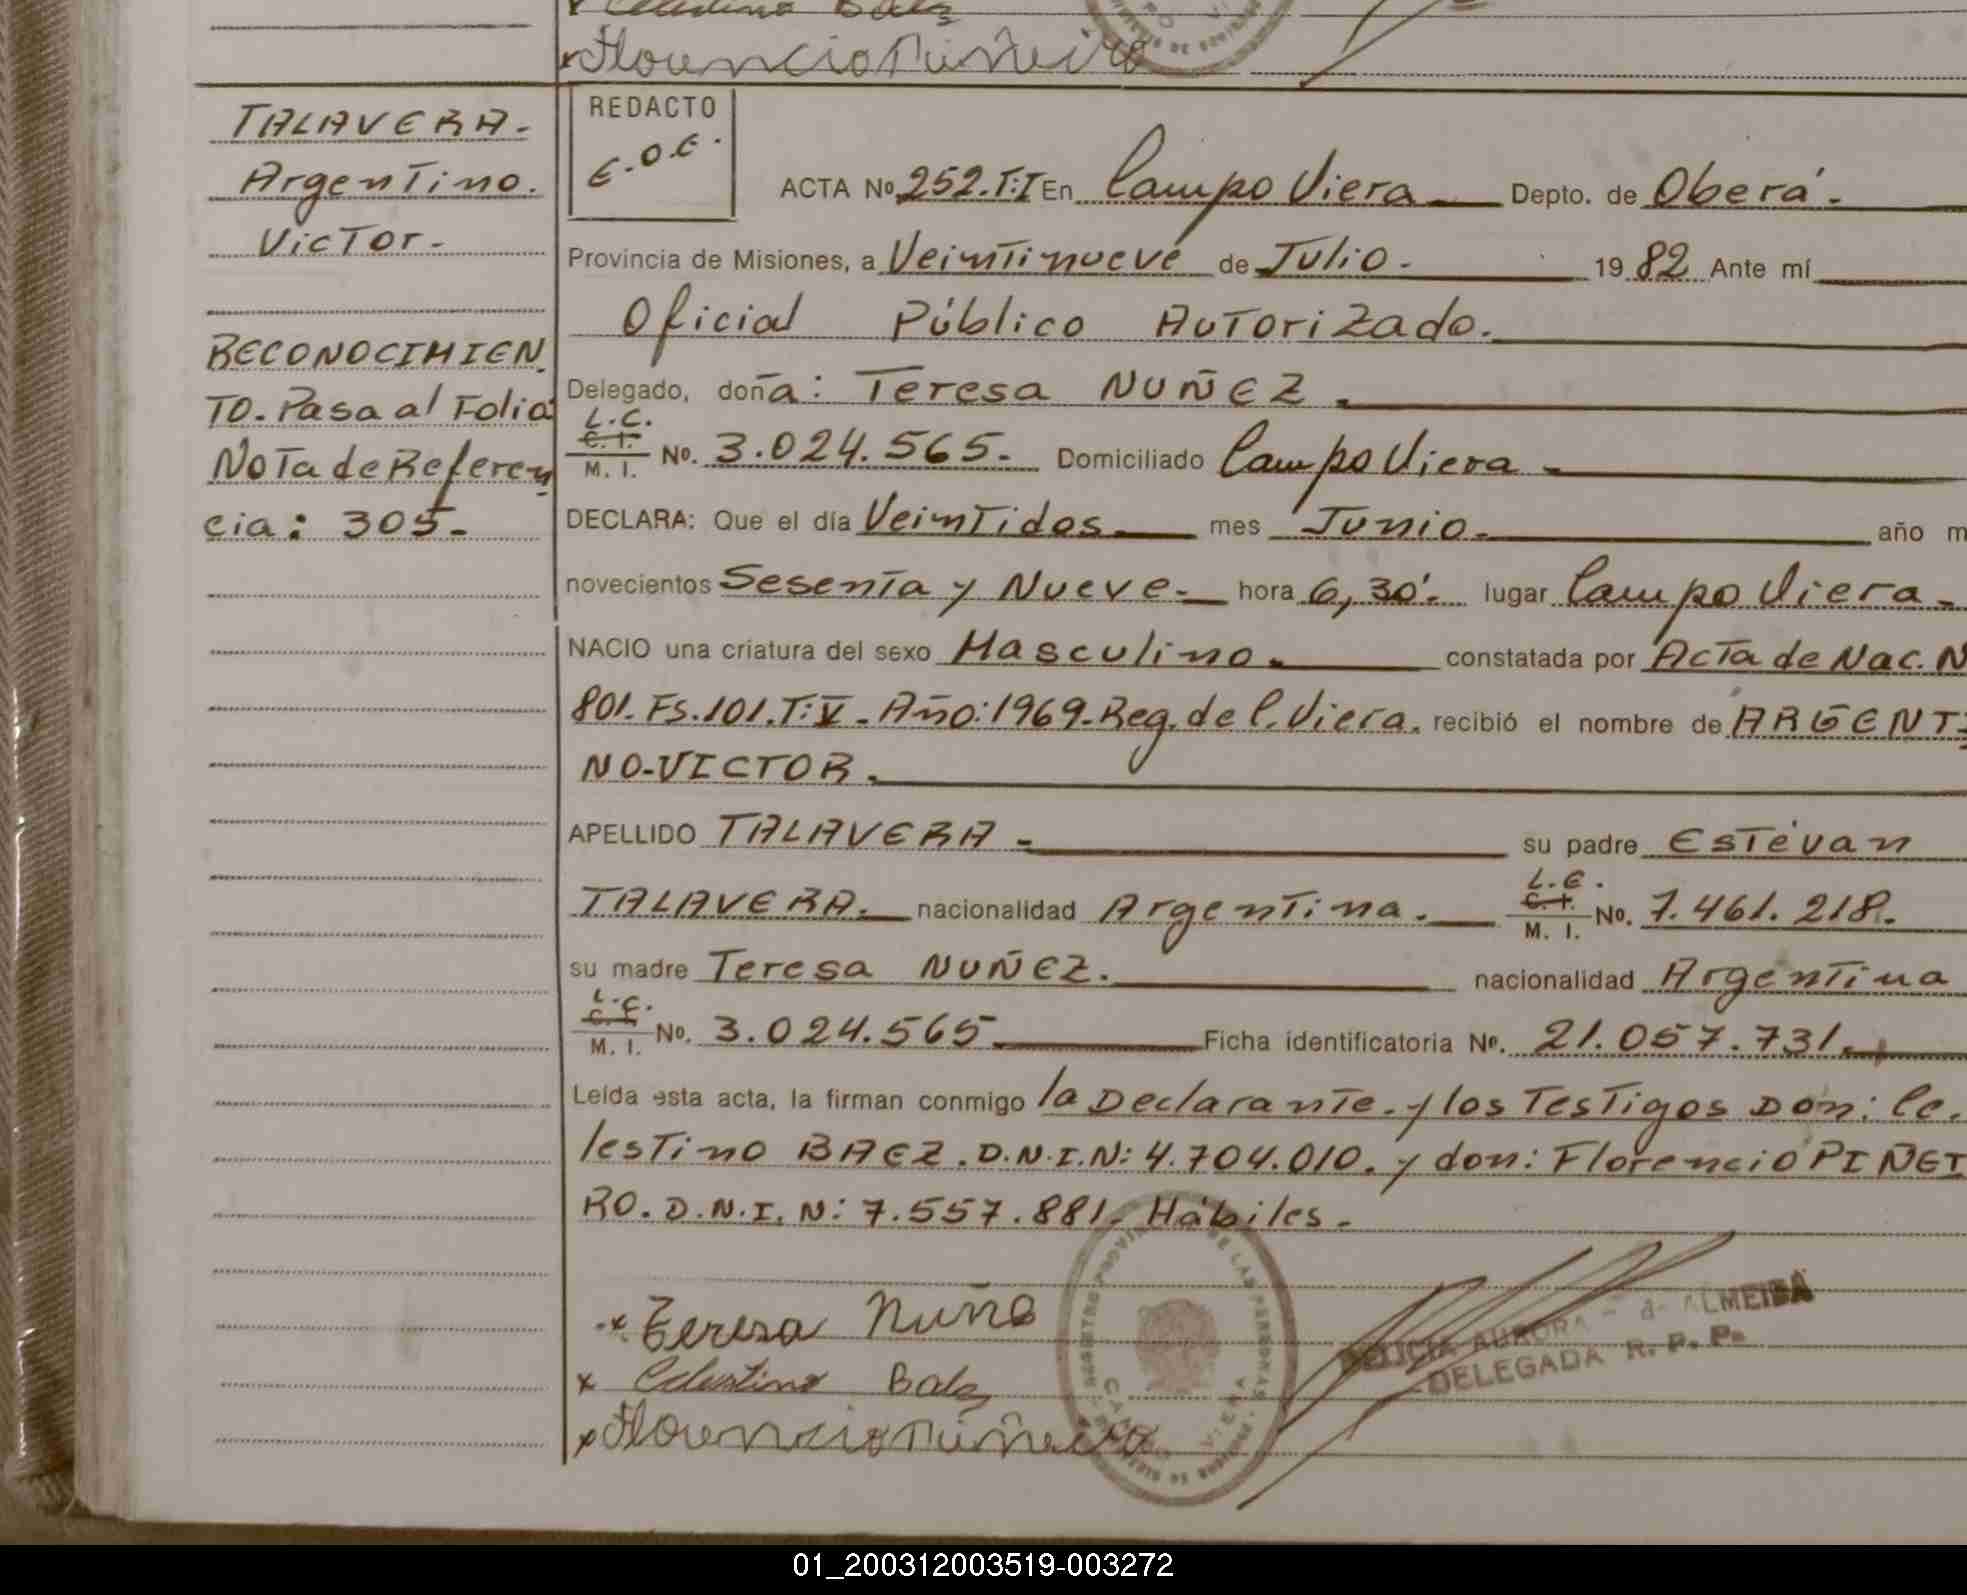 Celestino Baez
Florencio Piñeiro
TALAVERA.
Argentino.
Victor.
RECONOCIMIEN
TO. Pasa al Folio
Nota de Referen
cia: 305.
REDACTO
E.O.E.
ACTA Nº 252. T:I En Campo Viera Depto. de Oberá.
Provincia de Misiones, a Veintinueve de Julio. 19 82 Ante mí
Oficial Público Autorizado.
Delegado, doña: Teresa NUÑEZ.
L.C.
C. I.
M. I.
Nº. 3.024.565. Domiciliado Campo Viera
DECLARA: Que el día Veintidos mes Junio. año m
novecientos Sesenta y Nueve. hora 6,30'. lugar Campo Viera.
NACIO una criatura del sexo Masculino. constatada por Acta de Nac. N
801. Fs. 101. T:V. Año: 1969. Reg. de C. Viera. recibió el nombre de ARGENTI
NO-VICTOR.
APELLIDO TALAVERA su padre Estévan
TALAVERA. nacionalidad Argentina.
L.E.
C. I.
M. I.
No. 7.461.218.
su madre Teresa NUÑEZ. nacionalidad Argentina
L.C.
C. I.
M. I.
No. 3.024.565 Ficha identificatoria Nº. 21.057.731.
Leída esta acta, la firman conmigo la Declarante. y los Testigos Don: Ce.
lestino BAEZ. D.N.I. N: 4.704.010. y don: Florencio PIÑEI
RO. D.N.I. N: 7.557.881. Hábiles.
Teresa Nuñe
Celestino Baez
Florencio Piñeiro
REGISTRO PROVINCIAL DE LAS PERSONAS
CAMPO VIERA
MISIONES
DELICIA AURORA - d- ALMEIDA
DELEGADA R. P. P.
01_200312003519-003272